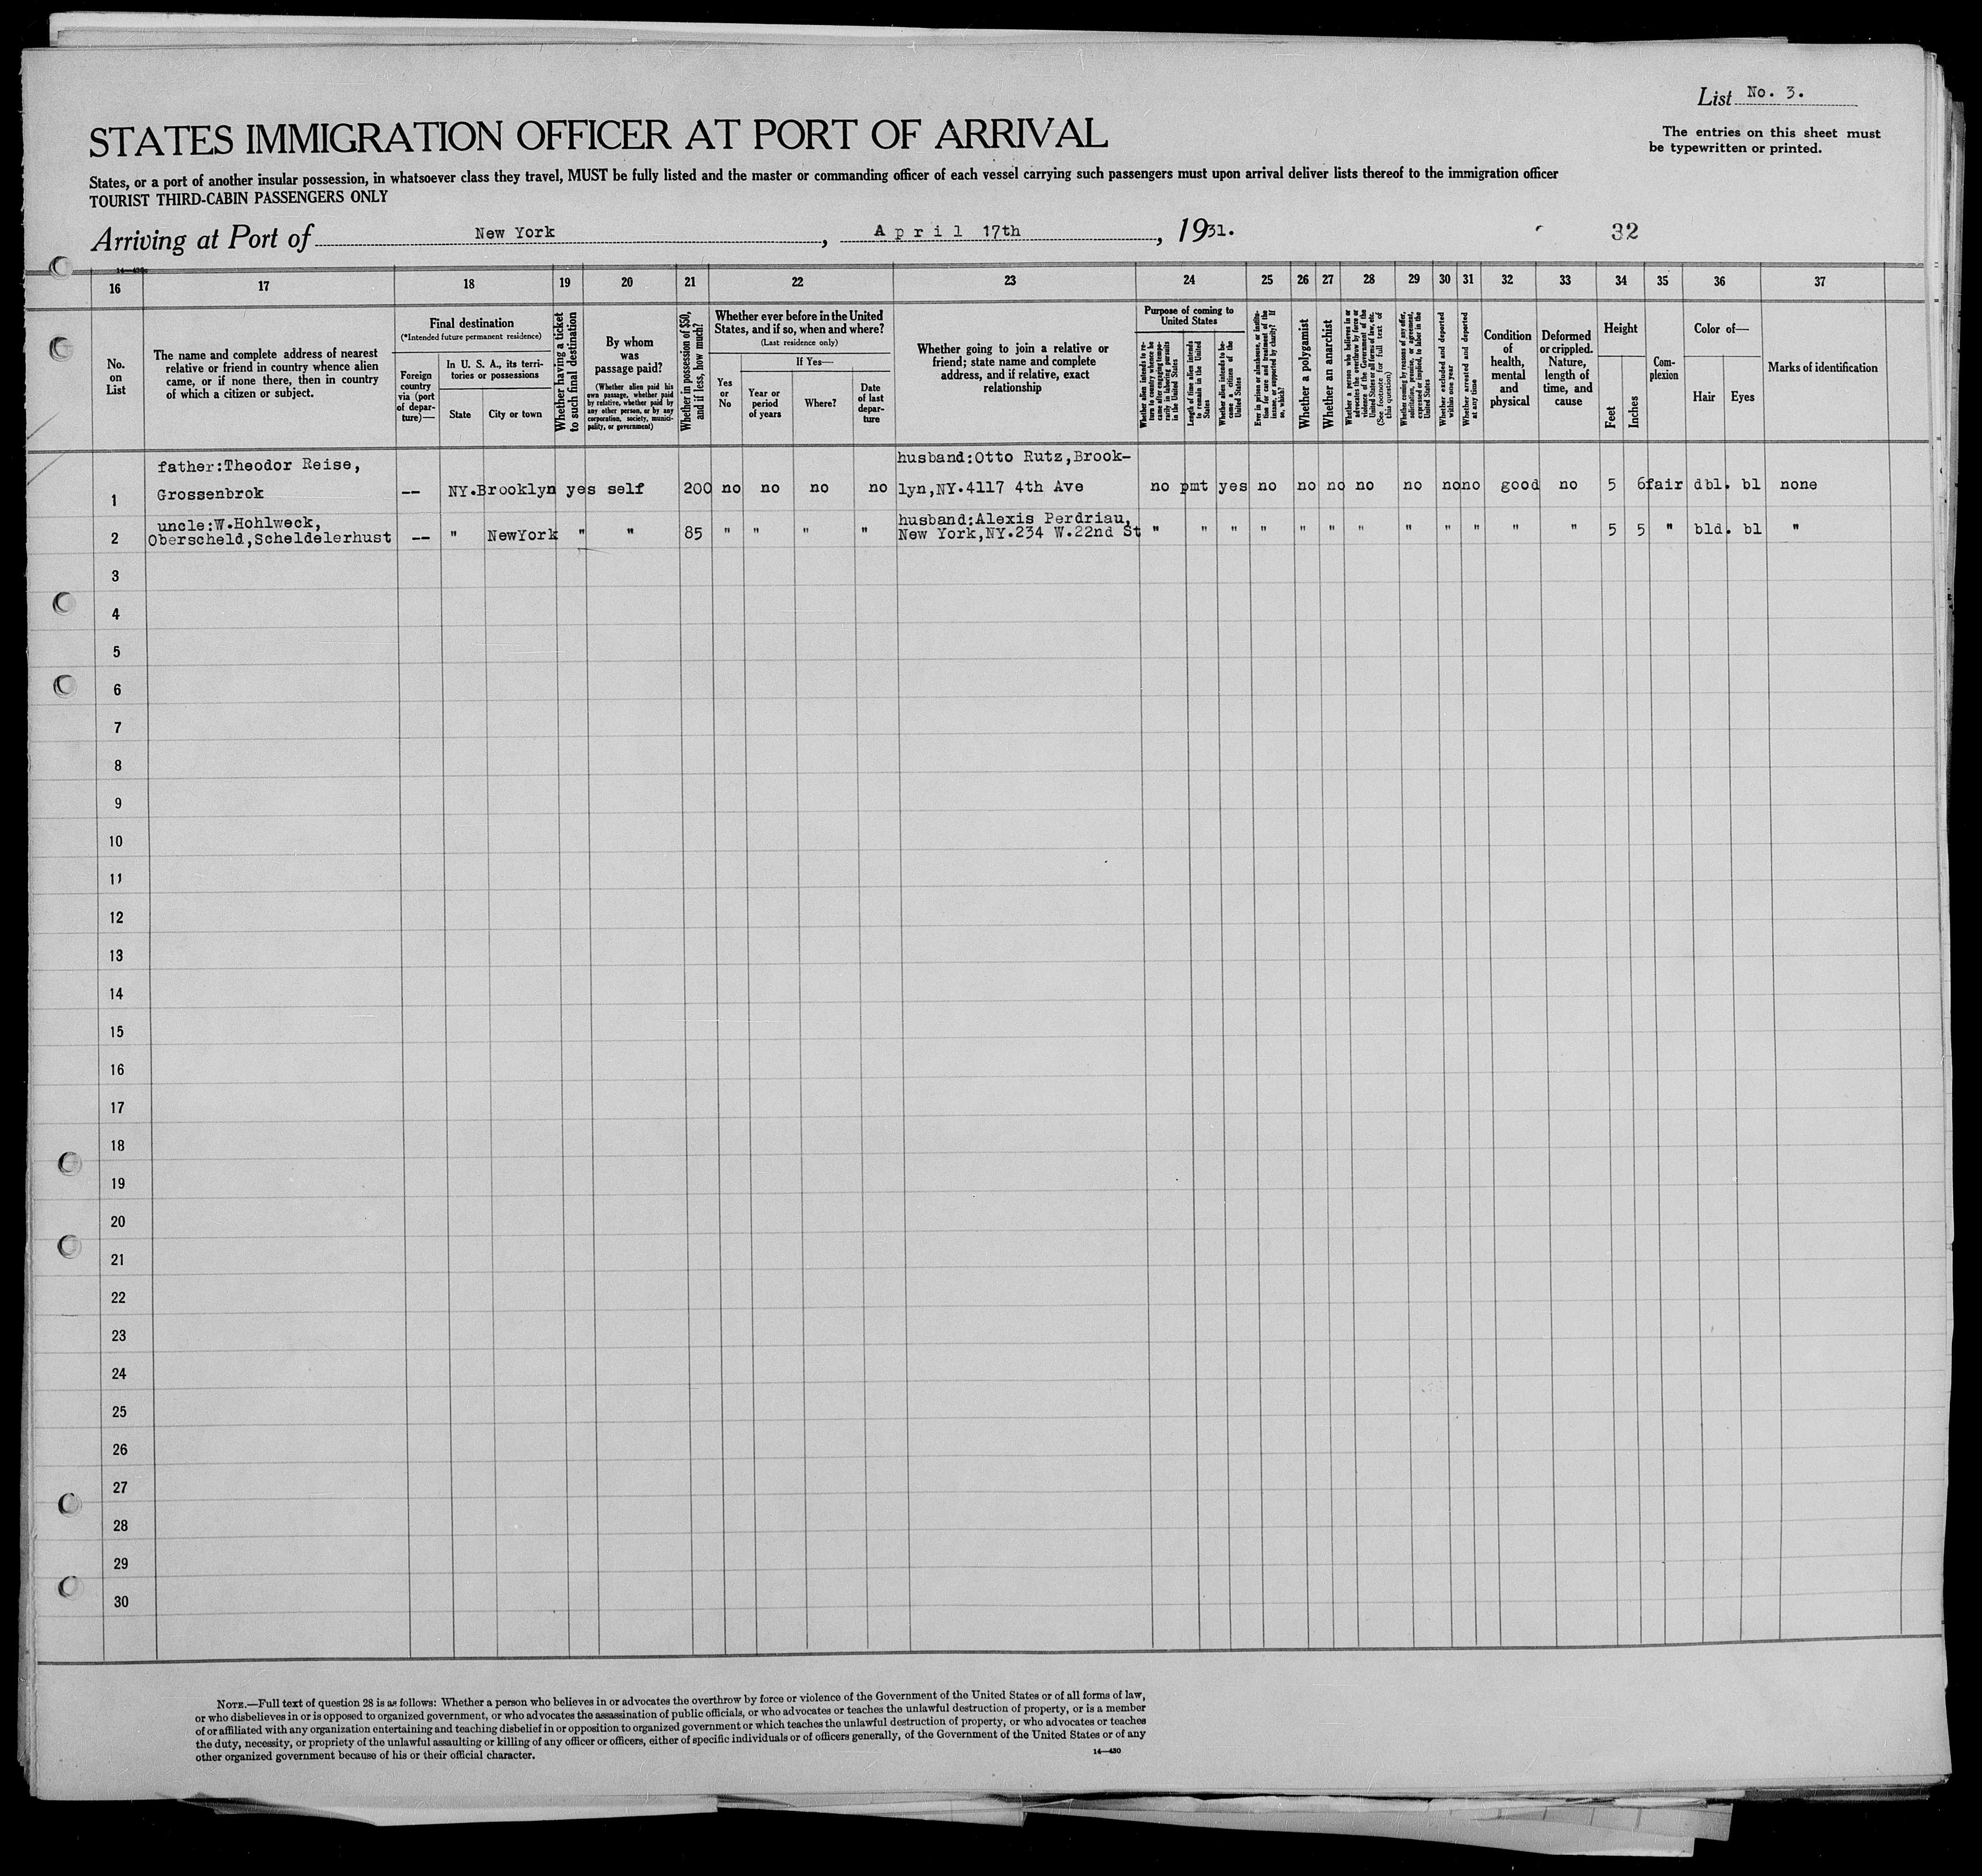 List No. 3.
STATES IMMIGRATION OFFICER AT PORT OF ARRIVAL
The entries on this sheet must
be typewritten or printed.
States, or a port of another insular possession, in whatsoever class they travel, MUST be fully listed and the master or commanding officer of each vessel carrying such passengers must upon arrival deliver lists thereof to the immigration officer
TOURIST THIRD-CABIN PASSENGERS ONLY
Arriving at Port of New York, April 17th, 1931.
32
14—430
16 17 18 19 20 21 22 23 24 25 26 27 28 29 30 31 32 33 34 35 36 37
No.
on
List
The name and complete address of nearest
relative or friend in country whence alien
came, or if none there, then in country
of which a citizen or subject.
Final destination
(*Intended future permanent residence)
Foreign
country
via (port
of depar-
ture)—
In U. S. A., its terri-
tories or possessions
State
City or town
Whether having a ticket
to such final destination
By whom
was
passage paid?
(Whether alien paid his
own passage, whether paid
by relative, whether paid by
any other person, or by any
corporation, society, munici-
pality, or government)
Whether in possession of $50,
and if less, how much?
Whether ever before in the United
States, and if so, when and where?
(Last residence only)
Yes
or
No
If Yes—
Year or
period
of years
Where?
Date
of last
depar-
ture
Whether going to join a relative or
friend; state name and complete
address, and if relative, exact
relationship
Purpose of coming to
United States
Whether alien intends to re-
turn to country whence he
came after engaging tempo-
rarily in laboring pursuits
in the United States
Length of time alien intends
to remain in the United
States
Whether alien intends to be-
come a citizen of the
United States
Ever in prison or almshouse, or institu-
tion for care and treatment of the
insane, or supported by charity? If
so, which?
Whether a polygamist
Whether an anarchist
Whether a person who believes in or
advocates the overthrow by force or
violence of the Government of the
United States or all forms of law, etc.
(See footnote for full text of
this question)
Whether coming by reason of any offer,
solicitation, promise, or agreement,
expressed or implied, to labor in the
United States
Whether excluded and deported
within one year
Whether arrested and deported
at any time
Condition
of
health,
mental
and
physical
Deformed
or crippled.
Nature,
length of
time, and
cause
Height
Feet
Inches
Com-
plexion
Color of—
Hair
Eyes
Marks of identification
father:Theodor Reise, husband:Otto Rutz,Brook-
1 Grossenbrok -- NY. Brooklyn yes self 200 no no no no lyn,NY.4117 4th Ave no pmt yes no no no no no no no good no 5 6 fair dbl. bl none
uncle:W.Hohlweck, husband:Alexis Perdriau,
2 Oberscheld,Scheldelerhust -- " NewYork " " 85 " " " " New York,NY.234 W.22nd St " " " " " " " " " " " " 5 5 " bld. bl "
3
4
5
6
7
8
9
10
11
12
13
14
15
16
17
18
19
20
21
22
23
24
25
26
27
28
29
30
NOTE.—Full text of question 28 is as follows: Whether a person who believes in or advocates the overthrow by force or violence of the Government of the United States or of all forms of law,
or who disbelieves in or is opposed to organized government, or who advocates the assassination of public officials, or who advocates or teaches the unlawful destruction of property, or is a member
of or affiliated with any organization entertaining and teaching disbelief in or opposition to organized government or which teaches the unlawful destruction of property, or who advocates or teaches
the duty, necessity, or propriety of the unlawful assaulting or killing of any officer or officers, either of specific individuals or of officers generally, of the Government of the United States or of any
other organized government because of his or their official character.
14—430